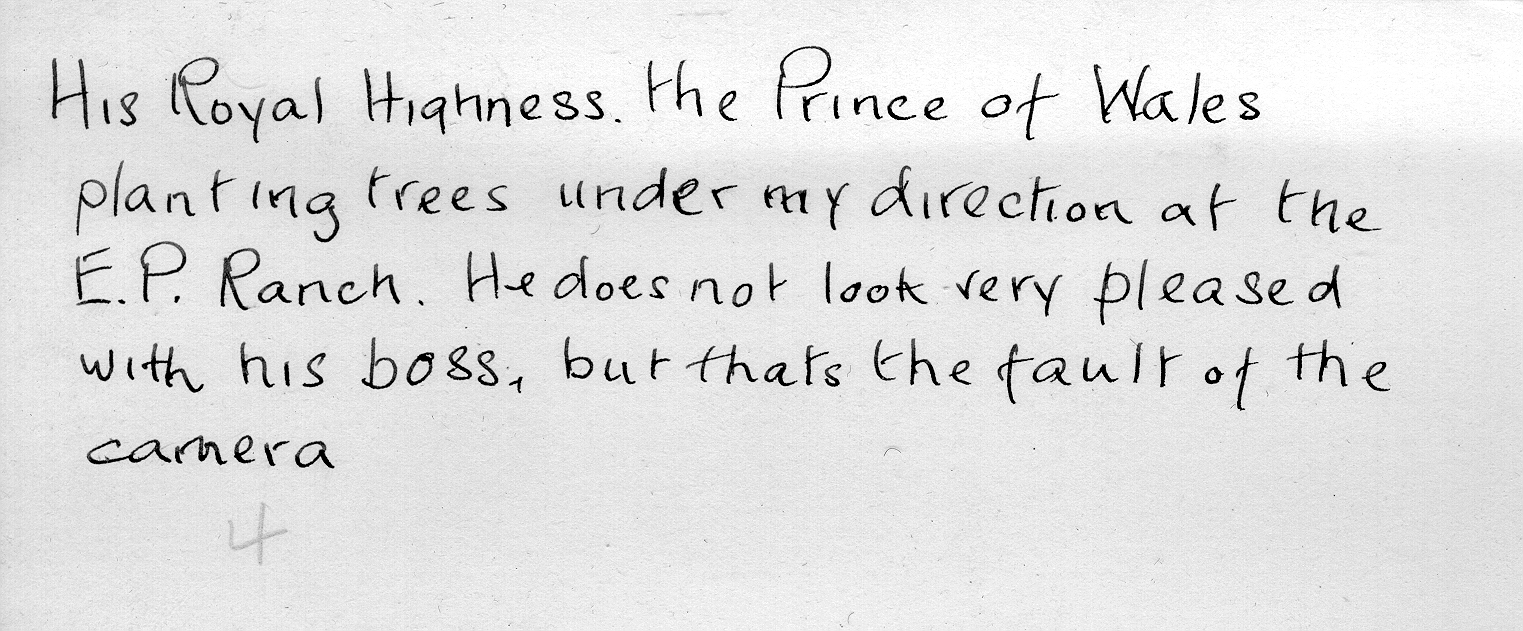 His Royal Highness. the Prince of Wales
planting trees under my direction at the
E.P. Ranch. He does not look very pleased
with his boss, but thats the fault of the
camera
4